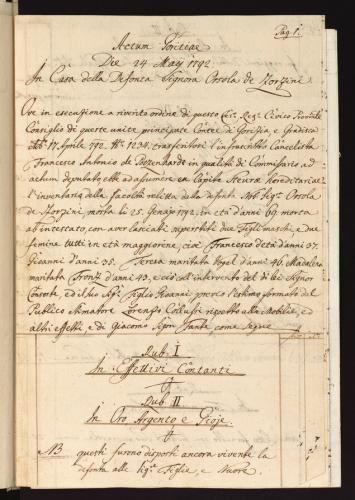 Pag. 1.
Actum Goritiae
Die 24 May 1792.
In Casa della Defonta Signora Orsola de Norzini
Ove in essecussione a riverito ordine di questo Ces. Reg. Civico Provinle
Consiglio di queste unite principate Contee di Gorizia, e Gradisca
17 Aprile 792. N. 1231. trasferitosi l'infrascritto Cancelista
Francesco Antonio de in qualità di Commissario ad
actum deputato ad assumere ex Capite Steurae hereditariae
l'inventario della facoltà relitta della defonta Nob. Sigra. Orsola
de Norzini, morta li 25. Genajo 1792, in età d'anni 69. morta
ab intestato, con aver lasciati superstiti due Figli maschi, e due
femine tutti in età maggiorene, cioè Francesco d'età d'anni 37.
Gioanni d'anni 35. Teresa maritata Vogel d'anni 46. Madalena
maritata d'anni 43, e ciò coll'intervento del di lei Signor
Consorte, ed il suo Sigr. Figlio Gioanni previo l'estimo formato del
Publico Stimatore Lorenzo rispetto alla Mobilia, ed
altri effetti, e di Giacomo come segue
Rub. I
In Effettivi Contanti
Rub. II
In Oro Argento e Gioje.
NB questi furono disposti ancora vivente la
defonta alle Sigre Figlie, e Nuore.